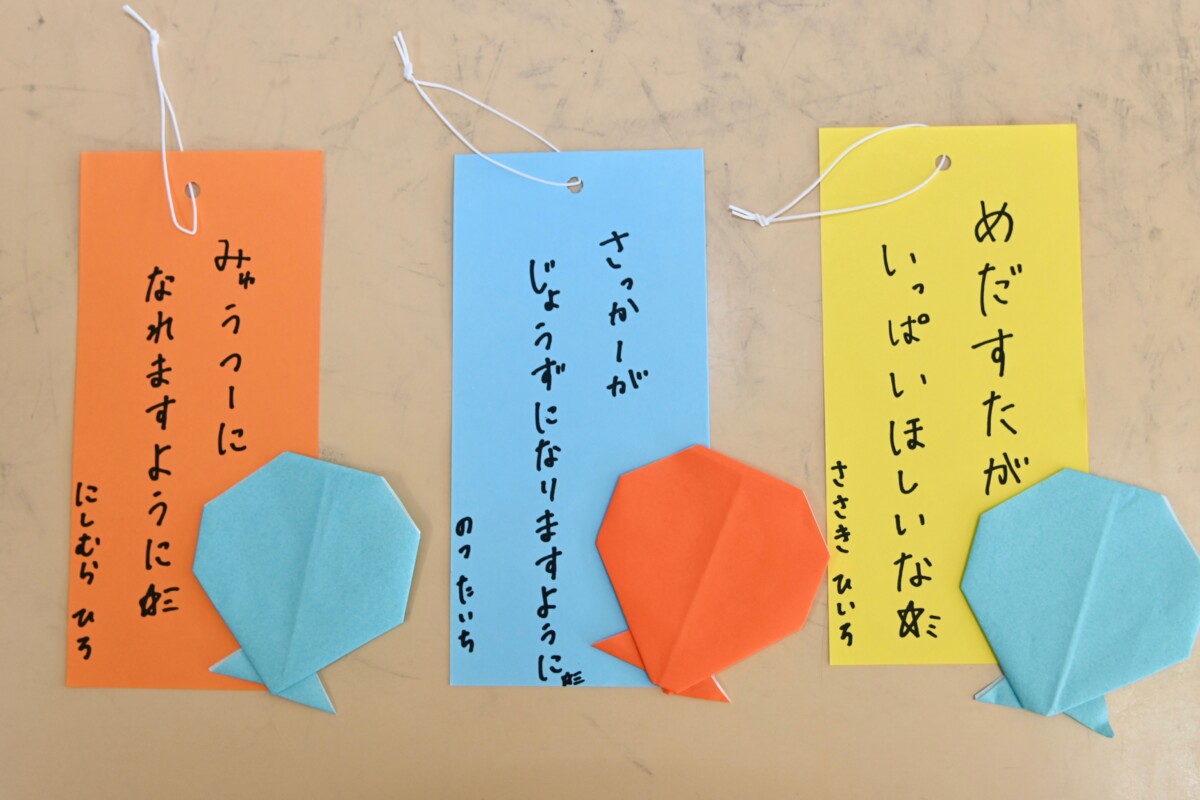 みゅうつーに
なれますように☆ミ
にしむら ひろ
さっかーが
じょうずになりますように☆ミ
のつ たいち
めだすたが
いっぱいほしいな☆ミ
ささき ひいろ